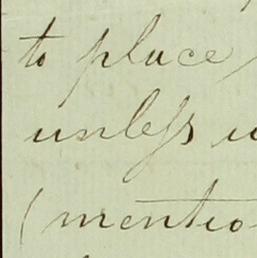 to place
unless
(mentio